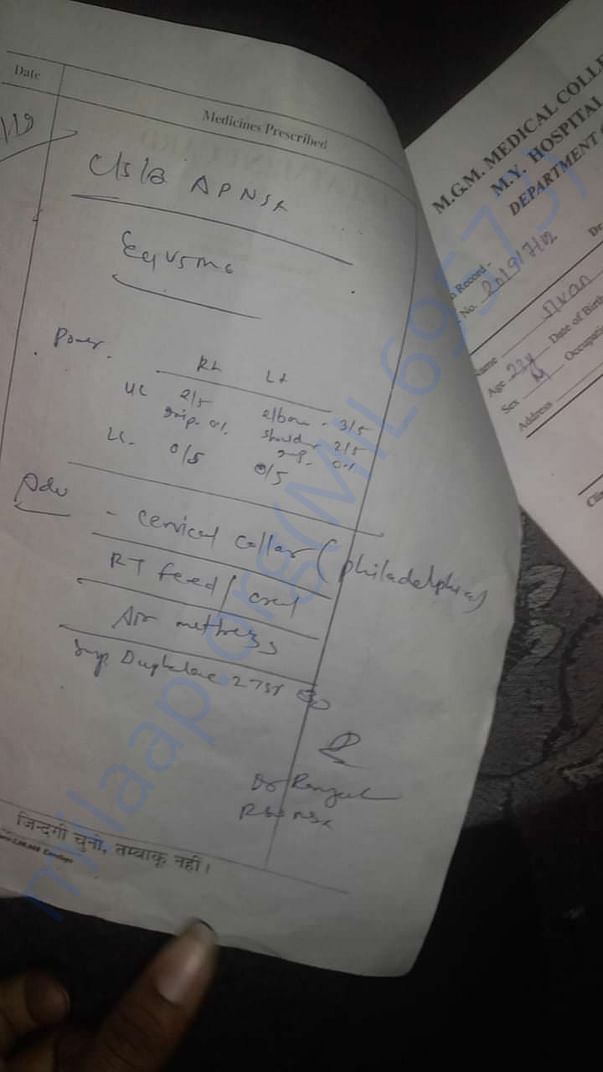 Date
Medicines Prescribed
/19
C/S/B APNSx
E4V5M6
Power.
Rt Lt
UL 2/5 elbow - 3/5
grip - 0% shoulder 2/5
grip - 0%
LL 0/5 0/5
Adv
- cervical collar (philadelphia)
RT feed / oral
Air mattress
Syp. Duphalac 2 TSF
Dr
जिन्दगी चुनो, तम्बाकू नहीं।
M.G.M. MEDICAL COLLE
M.Y. HOSPITAL
DEPARTMENT
Record -
No. 2019/7402
Name
Age 23y Date of Birth
Sex M Occupatio
Address
milaap.org(MIL69573)